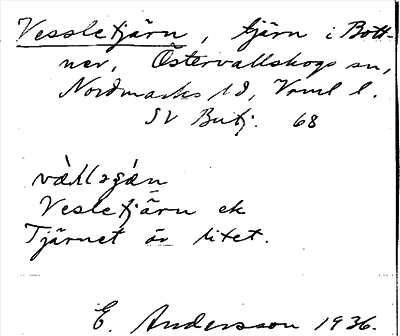 Vessletjärn, tjärn i Bott-
ner, Östervallskogs sn,
Nordmarks hd, Verml l.
SV Butj. 68
Vesletjärn ek
Tjärnet är litet.
E. Andersson 1936.